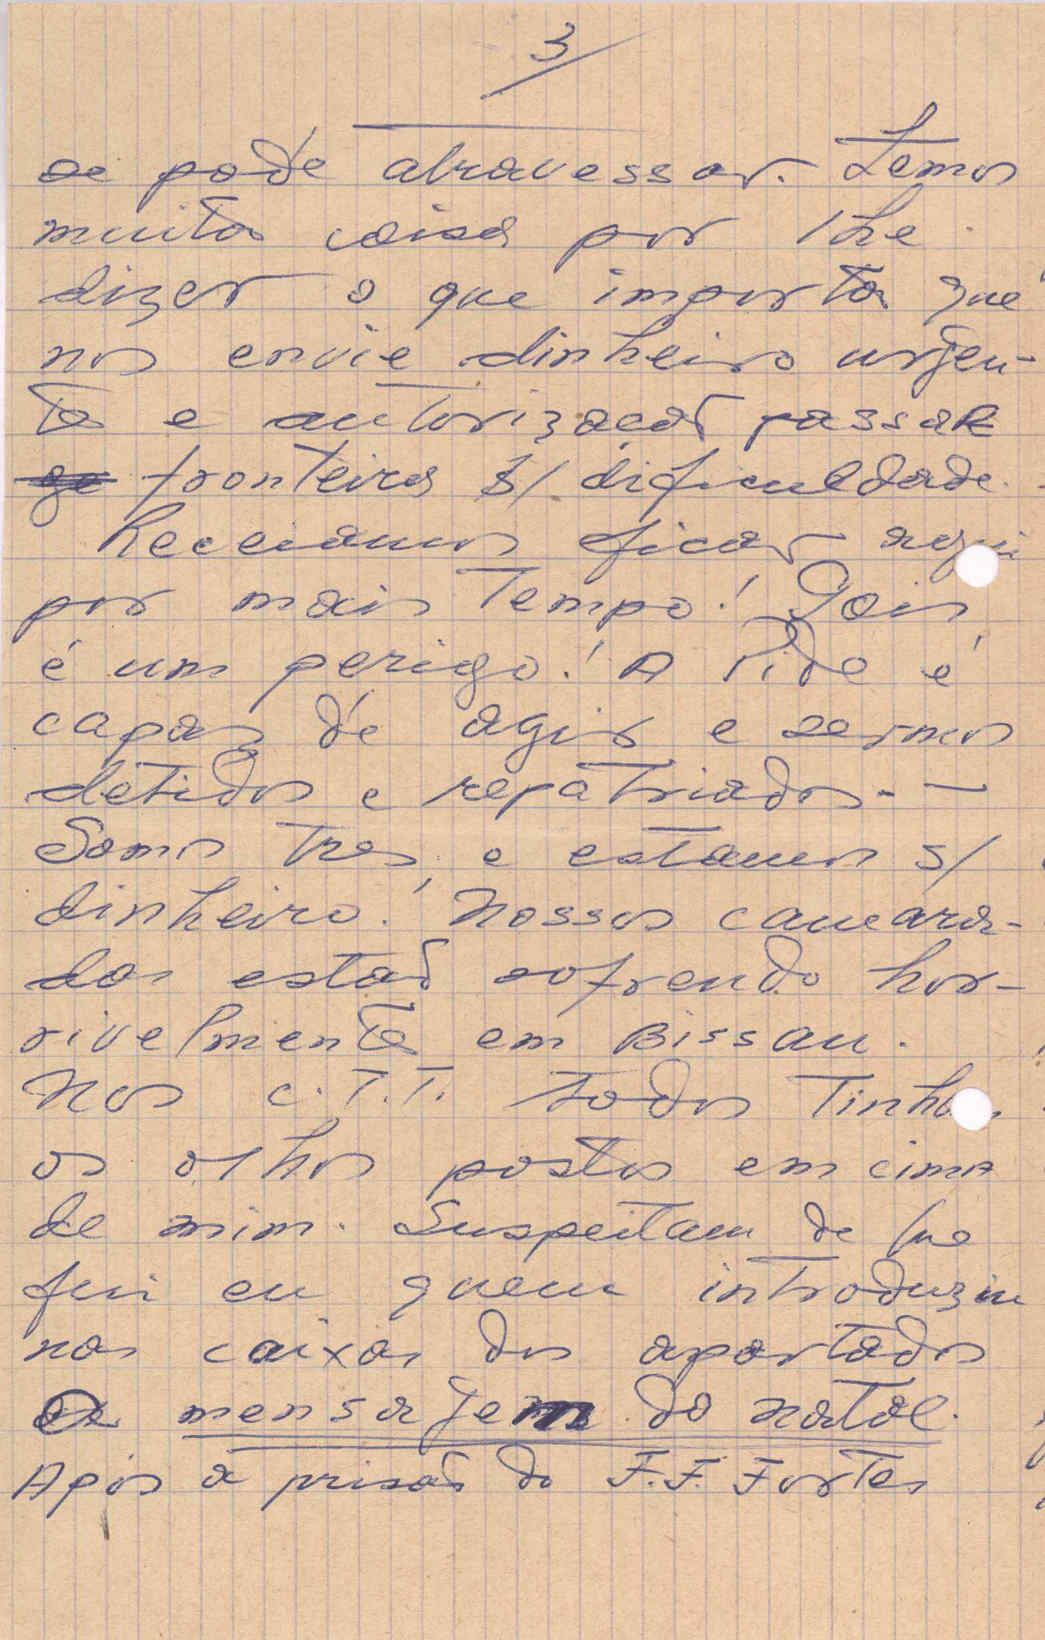 3/
se pode atravessar. Temos
muita coisa por lhe
dizer o que importa que
nos envie dinheiro urjen-
te e autorizaçaõ passar
fronteira s/ dificuldade.
Receiamos ficar aqui
por mais tempo! Pois
é um perigo! A Pide é
capaz de agir e sermos
detidos e repatriados. -
Somos tres, e estamos s/
dinheiro! Nossos camara-
das estaõ sofrendo hor-
rivelmente em Bissau.
Nos C.T.T. todos tinham
os olhos postos em cima
de mim. Suspeitam de que
fui eu quem introduziu
nas caixas dos apartados
a mensajem do natal.
Após a prisaõ do F.F. Fortes